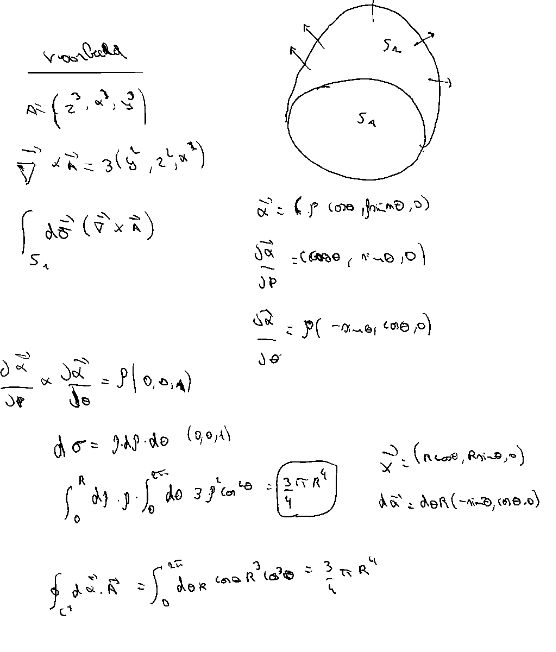 voorbeeld
A = (z³, x³, y³)
∇⃗ × A⃗ = 3(y², z², x²)
∫_{S₁} dσ⃗ (∇⃗ × A⃗)
S₂
S₁
x⃗ = (ρ cosθ, ρ sinθ, 0)
∂x⃗/∂ρ = (cosθ, sinθ, 0)
∂x⃗/∂θ = ρ(-sinθ, cosθ, 0)
∂x⃗/∂ρ × ∂x⃗/∂θ = ρ(0,0,1)
dσ = ρ·dρ·dθ (0,0,1)
∫₀^R dρ·ρ·∫₀^{2π} dθ 3ρ²cos²θ = 3/4 π R⁴
x⃗ = (R cosθ, R sinθ, 0)
dx⃗ = dθ R(-sinθ, cosθ, 0)
∮ dx⃗·A⃗ = ∫₀^{2π} dθ R cosθ R³ cos³θ = 3/4 π R⁴